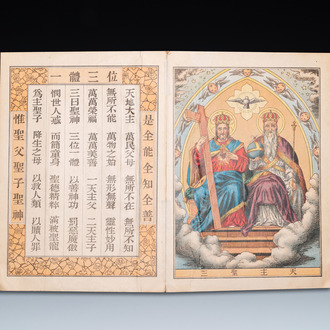 一體三位
是全能全知全善
天地大主 萬民父母 無所不在 無所不知
無所不能 萬物之始 無形無聲 靈性妙用
萬萬榮福 萬萬美善 一天主父 二天主子
三曰聖神 三位一體 以善神功 罰惡魔傲
憫世人惑 而簡童身 聖德精粹 滿被聖寵
為主聖子 降生之母 以救人類 以贖人罪
惟聖父聖子聖神
天主聖三